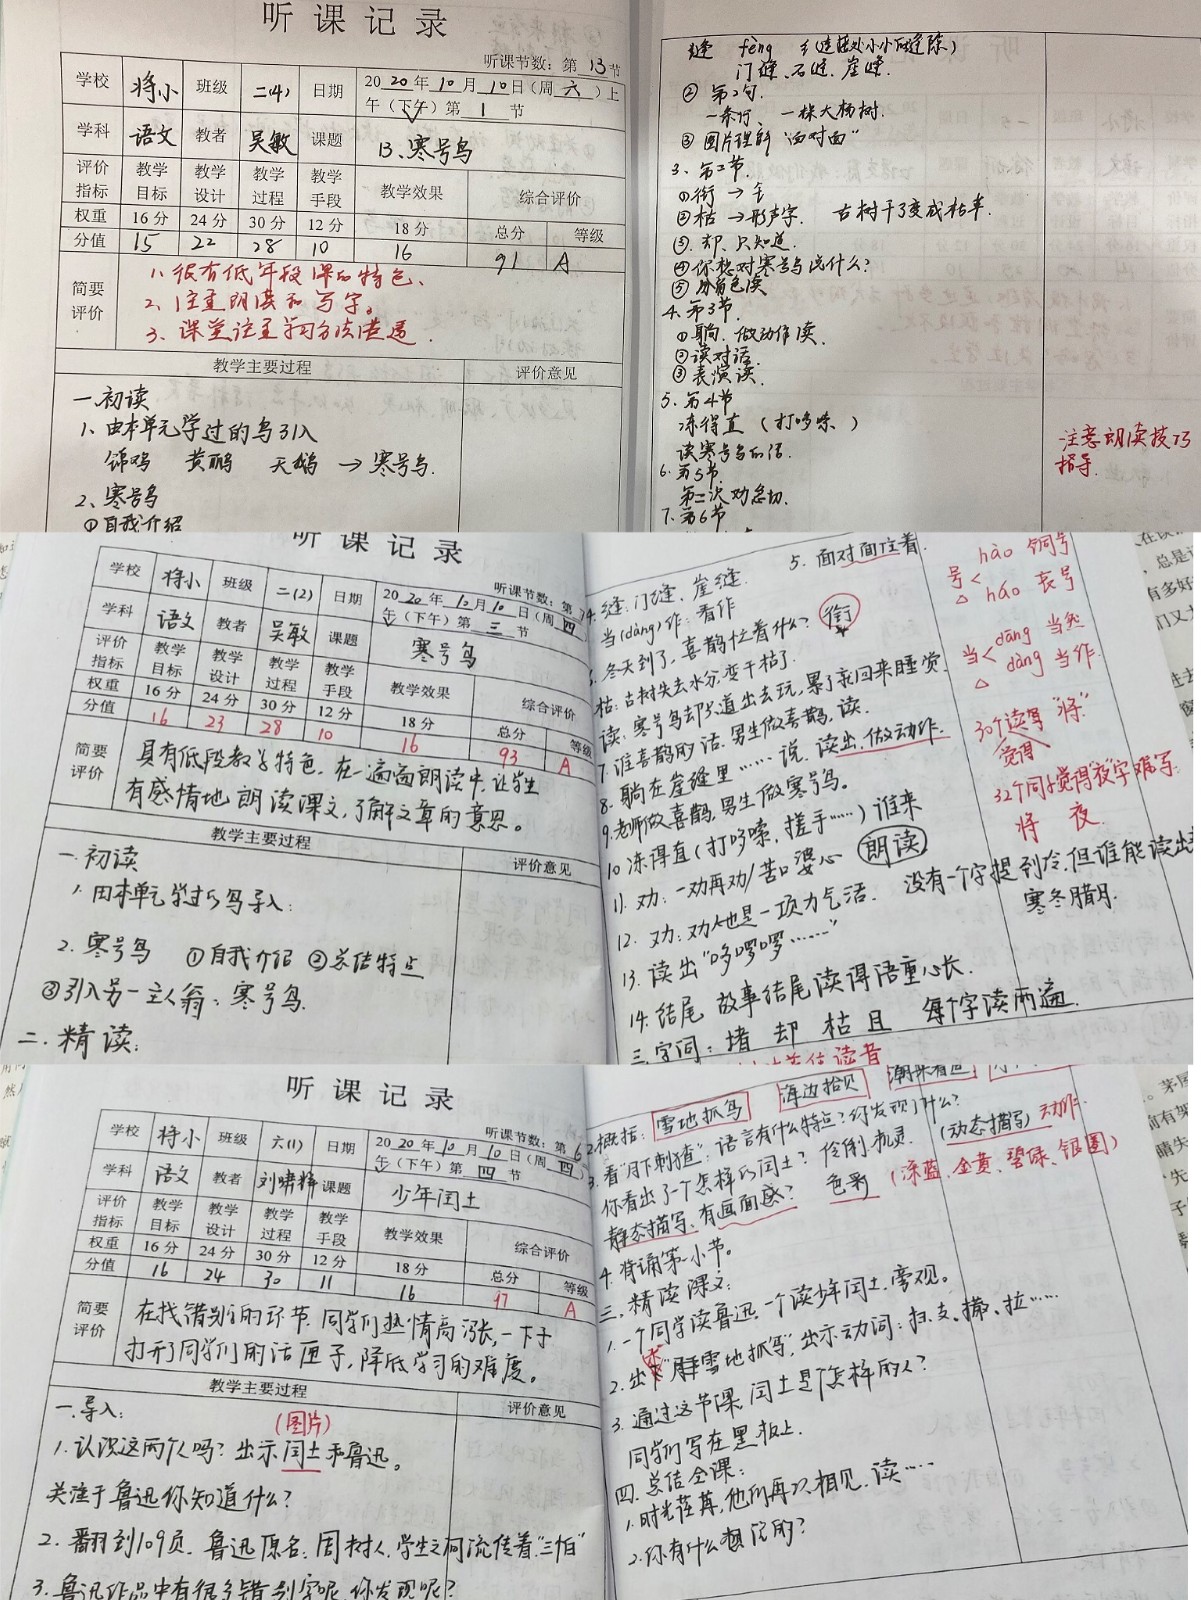 听课记录
听课节数：第 13 节
学校 将小 班级 二(4) 日期 2020年10月10日(周六)上
午（下午）第 1 节
学科 语文 教者 吴敏 课题 13、寒号鸟
评价指标 教学目标 教学设计 教学过程 教学手段 教学效果 综合评价
权重 16分 24分 30分 12分 18分 总分 等级
分值 15 22 28 10 16 91 A
简要评价
1、很有低年段课的特色、
2、注重朗读和写字。
3、课堂注重学习方法渗透.
教学主要过程 评价意见
一.初读
1、由本单元学过的鸟引入
锦鸡 黄鹂 天鹅 → 寒号鸟.
2、寒号鸟
①自我介绍
缝 fèng
门缝、石缝、崖缝.
② 第2句.
一条行、一株大杨树.
③ 图片理解“面对面”
3、第二节.
①衔 → 钅
②枯 → 形声字. 古树干了变成枯草.
③. 却、只知道.
④你想对寒号鸟说什么？
⑤ 分角色读
4、第3节.
①躺、做动作读.
②读对话.
③表演读.
5、第4节
冻得直（打哆嗦）
读寒号鸟的话.
6、第5节.
第二次劝急切.
7、第6节
注意朗读技巧
指导.
听课记录
听课节数：第
学校 将小 班级 二(2) 日期 2020年10月10日(周四)
午（下午）第 三 节
学科 语文 教者 吴敏 课题 寒号鸟
评价指标 教学目标 教学设计 教学过程 教学手段 教学效果 综合评价
权重 16分 24分 30分 12分 18分 总分 等级
分值 16 23 28 10 16 93 A
简要评价
具有低段教学特色，在一遍遍朗读中，让学生
有感情地朗读课文，了解文章的意思。
教学主要过程 评价意见
一.初读
1. 由本单元学过的鸟导入：
2. 寒号鸟 ①自我介绍 ②总结特点
③引入另一主人翁：寒号鸟.
二.精读：
5. 面对面住着.
4. 缝：门缝、崖缝.
当(dàng)作：看作
冬天到了，喜鹊忙着什么？ 衔
枯：古树失去水分，变干枯了.
读：寒号鸟却只知道出去玩，累了就回来睡觉.
7. 谁喜鹊的话. 男生做喜鹊，读.
8. 躺在崖缝里……说. 读出，做动作.
9. 老师做喜鹊，男生做寒号鸟。
10 冻得直（打哆嗦，搓手……）谁来 朗读
11. 劝：一劝再劝/苦口婆心
12. 劝：劝人也是一项力气活. 没有一个字提到冷，但谁能读出
寒冬腊月.
13. 读出“哆啰啰……”
14. 结尾 故事结尾读得语重心长.
三.字词：堵 却 枯 且 每个字读两遍.
号< hào 铜号
háo 哀号
当< dāng 当然
dàng 当作.
30个读写“将”
觉得
32个同学觉得“夜”字难写
将 夜
听课记录
听课节数：第 6
学校 将小 班级 六(1) 日期 2020年10月10日(周四)
午（下午）第 四 节
学科 语文 教者 刘啸辉 课题 少年闰土
评价指标 教学目标 教学设计 教学过程 教学手段 教学效果 综合评价
权重 16分 24分 30分 12分 18分 总分 等级
分值 16 24 30 11 16 97 A
简要评价
在找错别字的环节，同学们热情高涨，一下子
打开了同学们的话匣子，降低学习的难度。
教学主要过程 评价意见
一.导入： (图片)
1. 认识这两个人吗？出示闰土和鲁迅。
关注于鲁迅你知道什么？
2. 翻到109页. 鲁迅原名：周树人，学生之间流传着“三怕”
3. 鲁迅作品中有很多错别字呢，你发现呢？
2. 概括：雪地抓鸟 海边拾贝
3. 看“月下刺猹”：语言有什么特点？你发现了什么？
你看出了一个怎样的闰土？ 伶俐、机灵. (动态描写) 动作.
静态描写、有画面感？ 色彩 (深蓝、金黄、碧绿、银圈)
4. 背诵第一小节。
三.精读课文：
1. 一个同学读鲁迅，一个读少年闰土，旁观。
2. 出示“雪地抓鸟”，出示动词：扫、支、撒、拉……
3. 通过这节课，闰土是个怎样的人？
同学们写在黑板上.
四.总结全课：
1. 时光荏苒，他们再次相见，读……
2. 你有什么想说的？